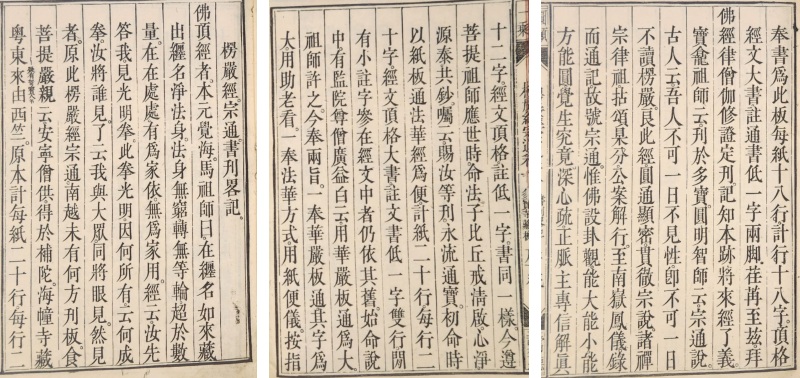 楞嚴經宗通書刊畧記。
佛頂經者。本元覺海。馬祖師曰在纏名如來藏
出纏名淨法身。法身無窮。轉無等輪。超於數
量。在在處處。有爲家依。無爲家用。經云汝先
答我見光明拳。此拳光明因何所有。云何成
拳。汝將誰見。了云我與大眾同將眼見。然見
者。原此楞嚴經宗通。南越未有何方刋板。食
菩提嚴親云。安寧僧供得於補陀。海幢寺藏
粵東來由西竺。原本計每紙二十行每行二
十二字。經文頂格。註低一字。書同一樣。今遵
菩提祖師應世時。命法子比丘戒清啟心淨
源泰共鈔。囑云賜汝等刋。永流通寶。初命時
以紙板通法華經爲便。計紙二十行每行二
十字。經文頂格大書。註文書低一字雙行。間
有小註字參在經文中者。仍依其舊。始命說
中有監院尊僧廣益白云。用華嚴板通爲大。
祖師許之。今奉兩旨。一奉華嚴板通。其字爲
太用助老看。一奉法華方式。用紙便儀。按指
奉書爲此板。每紙十八行。計行十八字。頂格
經文大書。註通書低一字兩脚。荏苒至茲。拜
佛經律僧伽修證定刋記。知本跡將來經了義。
寶龕祖師云。刋於多寶。圓明智師云。宗通說。
古人云。吾人不可一日不見性。卽不可一日
不讀楞嚴。良此經圓通顯密。貫徹宗說。諸禪
宗律祖拈頌果分公案解行。至南嶽鳳儀錄
而通記。故號宗通。惟佛設卦觀。能大能小能
方能圓。覺生究竟。深心疏正脈。主專信解眞